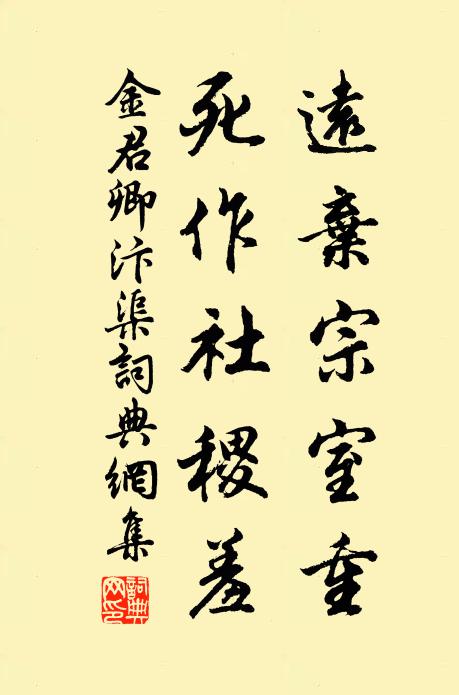 遠棄宗室重
死作社稷羞
金君卿汴渠詞典網集
詞典網印